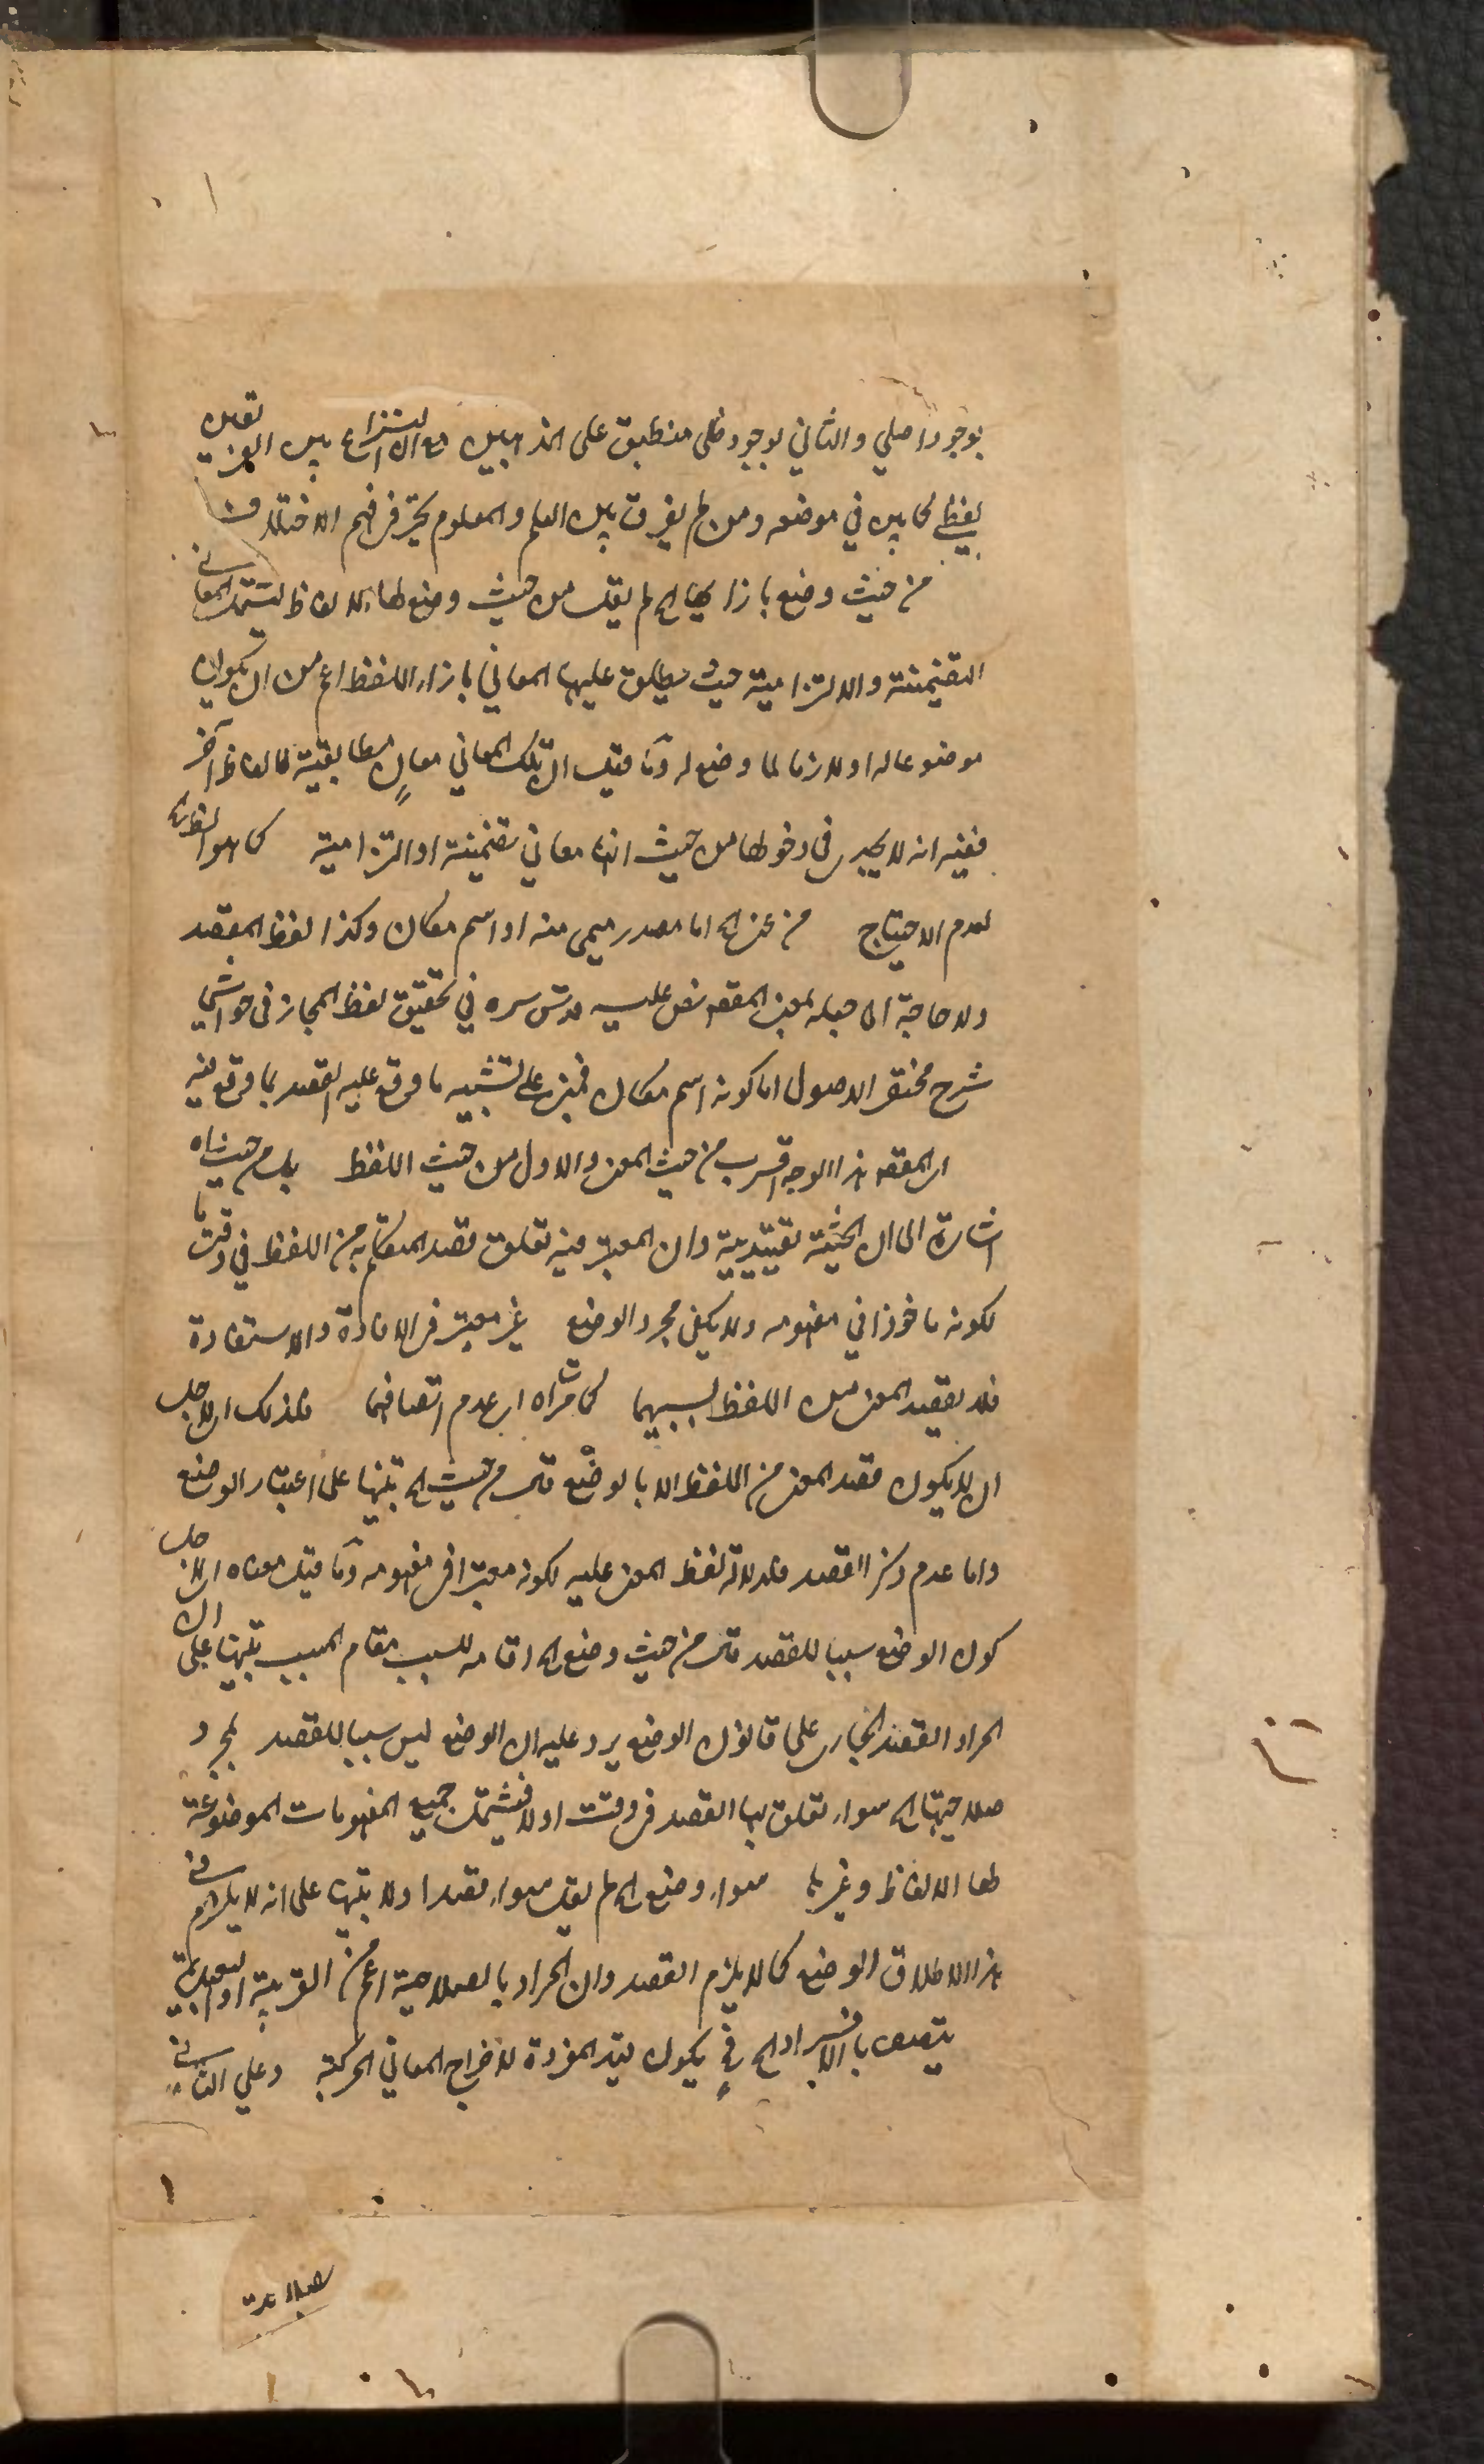 بوجود اصلي والثاني بوجود ظلى منطبق على المذهبين مع ان النزاع بين الفريقين
لفظي كما بين في موضعه ومن لم يفرق بين العلم والمعلوم تحير في فهم الاختلاف
من حيث وضع بازائها الخ لم يقل من حيث وضع لها الالفاظ ليشمل المعاني
التضمنية والالتزامية حيث يطلق عليها المعاني بازاء اللفظ اعم من ان يكون
موضوعا له او لازما لما وضع له وما قيل ان تلك المعاني معانٍ مطابقية لالفاظ آخر
ففيه انه لا يجدي في دخولها من حيث انها معاني تضمنية او التزامية كما هو الظاهر
لعدم الاحتياج من عنى الخ اما مصدر ميمى منه او اسم مكان وكذا لفظ المقصد
ولا حاجة الى جعله بمعنى المقصد نص عليه قدس سره في تحقيق لفظ المجاز في حواشي
شرح مختصر الاصول اما كونه اسم مكان فمبنى على تشبيه ما وقع عليه القصد بما وقع فيه
اى المقصد هذا الوجه اقرب من حيث المعنى والاول من حيث اللفظ بل من حيث انها
اشارة الى ان الحيثية تقييدية وان المعتبر فيه تعلق قصد المتكلم به من اللفظ في وقت ما
لكونه ماخوذا في مفهومه ولا يكفى مجرد الوضع غير معتبر في الافادة والاستفادة
فلا يقصد المعنى من اللفظ بسببهما كما مر اه اى عدم اتصافها فلذلك اى لاجل
ان لا يكون قصد المعنى من اللفظ الا بالوضع قال من حيث الخ تنبيها على اعتبار الوضع
واما عدم ذكر القصد فلدلالة لفظ المعنى عليه لكونه معتبرا في مفهومه وما قيل معناه اى لاجل
كون الوضع سببا للقصد قال من حيث وضع الخ اقامه للسبب مقام المسبب تنبيها على ان
المراد القصد الجارى على قانون الوضع يرد عليه ان الوضع ليس سببا للقصد بمجرد
صلاحيتها الخ سواء تعلق بها القصد في وقت او لا فيشمل جميع المفهومات الموضوعة
لها الالفاظ وغيرها سواء وضع الخ لم يقل سواء قصدا ولا تنبيها على انه لا يلزم في
هذا الاطلاق الوضع كما لا يلزم القصد وان المراد بالصلاحية اعم من القريبة او البعيدة
يتصف بالافراد الخ فح يكون قيد المفردة لاخراج المعاني المركبة وعلي الثاني